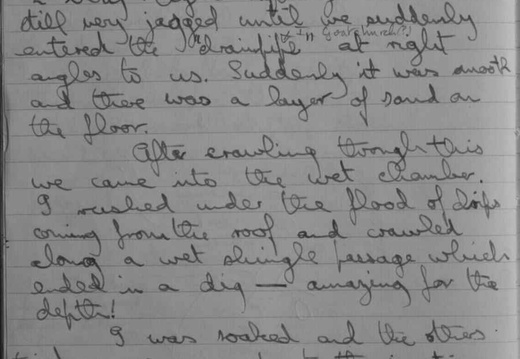 still very jagged until we suddenly
entered the "drainpipe" at right
angles to us. Suddenly it was smooth
and there was a layer of sand on
the floor.
After crawling through this
we came into the wet chamber.
I rushed under the flood of drips
coming from the roof and crawled
along a wet shingle passage which
ended in a dig — amazing for the
depth!
I was soaked and the others